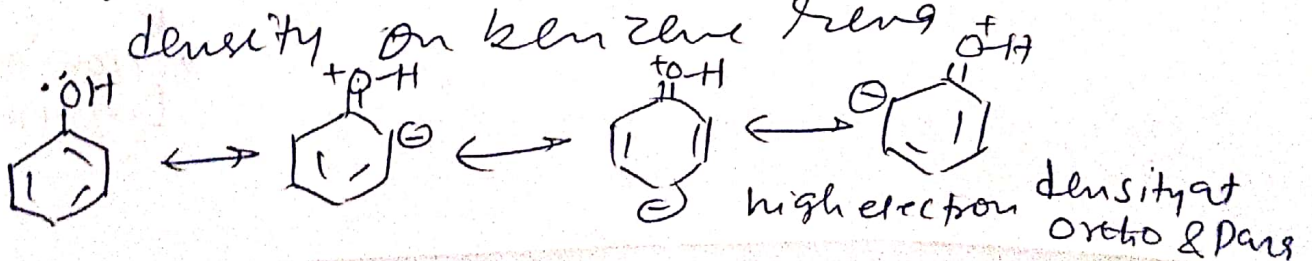 density on benzene ring
:ÖH +O-H +O-H +O-H
⊖ ⊖ ⊖
high electron density at
ortho & Para